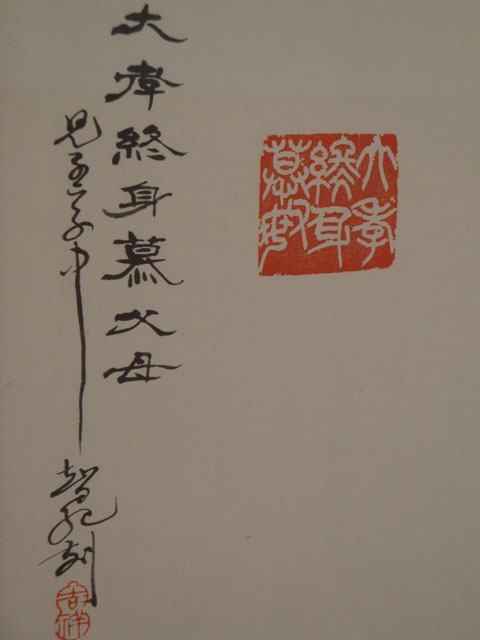 大孝終身慕父母
見子中
刻
大孝
終身
慕父母